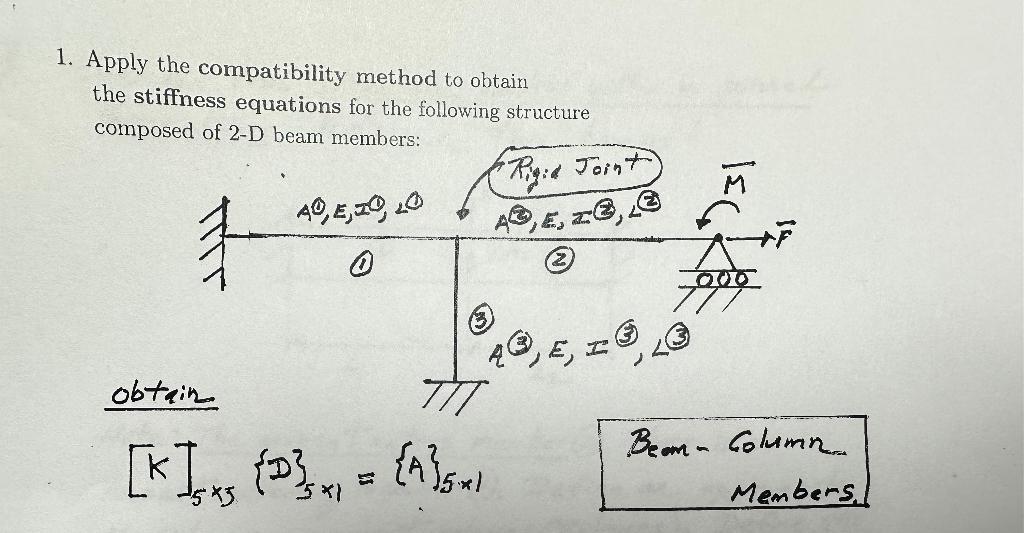 1. Apply the compatibility method to obtain
the stiffness equations for the following structure
composed of 2-D beam members:
Rigid Joint
M̅
A①, E, I①, L①
A②, E, I②, L②
F̅
①
②
③
A③, E, I③, L③
obtain
[K]5x5 {D}5x1 = {A}5x1
Beam - Column
Members.